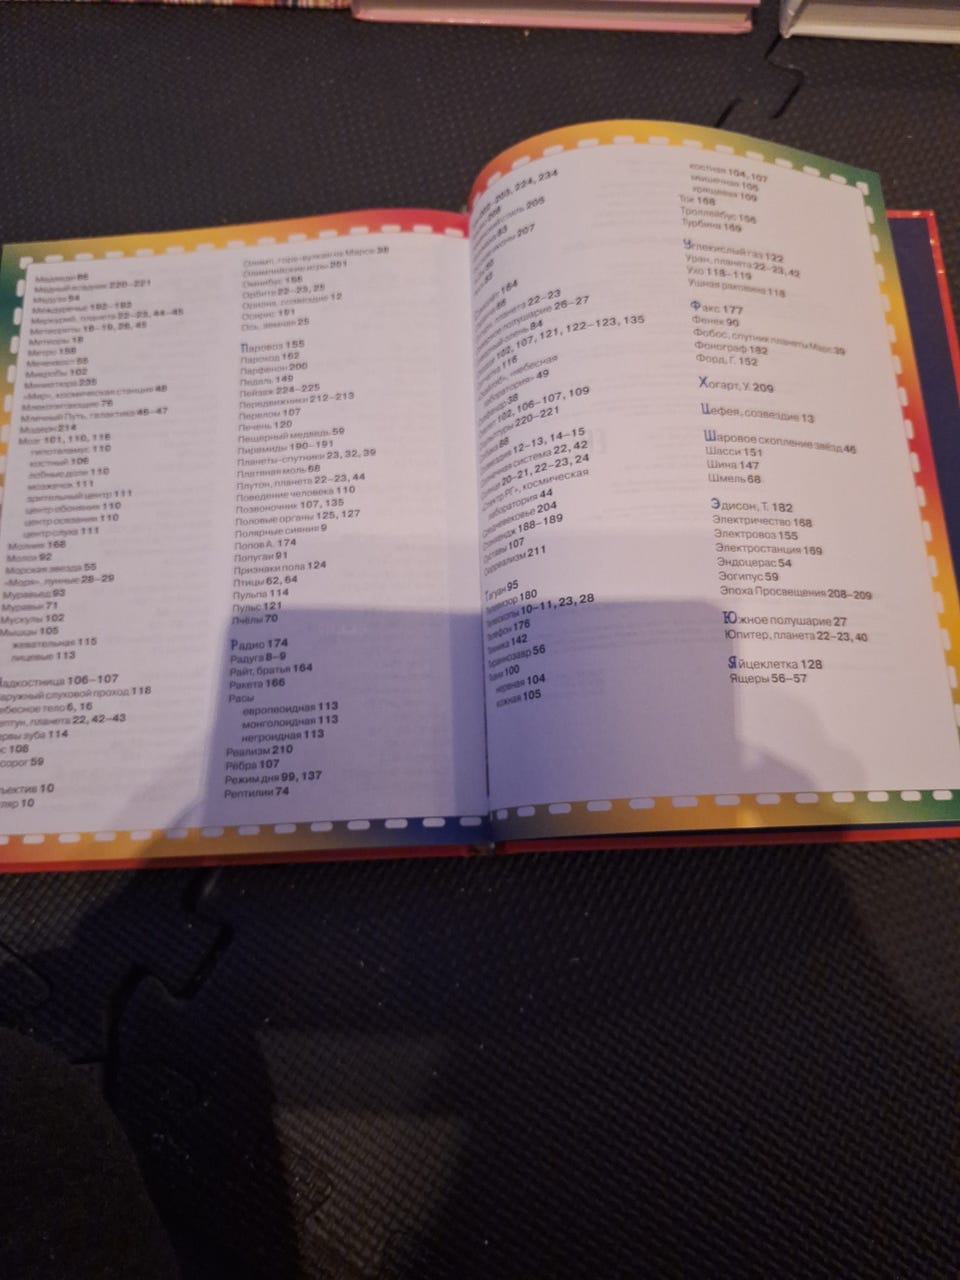 Медведи 86
Медный всадник 220–221
Медуза 54
Междуречье 192–193
Меркурий, планета 22–23, 44–45
Метеориты 18–19, 26, 45
Метеоры 18
Метро 158
Мечехвост 55
Микробы 102
Миниатюра 235
«Мир», космическая станция 48
Млекопитающие 76
Млечный Путь, галактика 46–47
Модерн 214
Мозг 101, 110, 116
гипоталамус 110
костный 106
лобные доли 110
мозжечок 111
зрительный центр 111
центр обоняния 110
центр осязания 110
центр слуха 111
Молния 168
Молох 92
Морская звезда 55
«Моря», лунные 28–29
Муравьед 93
Муравьи 71
Мускулы 102
Мышцы 105
жевательная 115
лицевые 113
адкостница 106–107
аружный слуховой проход 118
ебесное тело 6, 16
ептун, планета 22, 42–43
ервы зуба 114
с 108
сорог 59
ъектив 10
ляр 10
Олимп, гора-вулкан на Марсе 38
Олимпийские игры 251
Омнибус 156
Орбита 22–23, 25
Ориона, созвездие 12
Осирис 191
Ось, земная 25
Паровоз 155
Пароход 162
Парфенон 200
Педаль 149
Пейзаж 224–225
Передвижники 212–213
Перелом 107
Печень 120
Пещерный медведь 59
Пирамиды 190–191
Планеты-спутники 23, 32, 39
Платяная моль 68
Плутон, планета 22–23, 44
Поведение человека 110
Позвоночник 107, 135
Половые органы 125, 127
Полярные сияния 9
Попов А. 174
Попугаи 91
Признаки пола 124
Птицы 62, 64
Пульпа 114
Пульс 121
Пчёлы 70
Радио 174
Радуга 8–9
Райт, братья 164
Ракета 166
Расы
европеоидная 113
монголоидная 113
негроидная 113
Реализм 210
Рёбра 107
Режим дня 99, 137
Рептилии 74
203, 224, 234
стиль 206
83
207
164
22–23
полушарие 26–27
олень 84
102, 107, 121, 122–123, 135
116
«небесная
лаборатория» 49
38
102, 106–107, 109
220–221
88
12–13, 14–15
система 22, 42
20–21, 22–23, 24
космическая
лаборатория 44
Средневековье 204
Стоунхендж 188–189
Суставы 107
Сюрреализм 211
Тагуан 95
Телевизор 180
Телескопы 10–11, 23, 28
Телефон 176
Техника 142
Тираннозавр 56
Ткани 100
нервная 104
кожная 105
костная 104, 107
мышечная 105
хрящевая 109
Ток 168
Троллейбус 156
Турбина 169
Углекислый газ 122
Уран, планета 22–23, 42
Ухо 118–119
Ушная раковина 118
Факс 177
Фенек 90
Фобос, спутник планеты Марс 39
Фонограф 182
Форд, Г. 152
Хогарт, У. 209
Цефея, созвездие 13
Шаровое скопление звёзд 46
Шасси 151
Шина 147
Шмель 68
Эдисон, Т. 182
Электричество 168
Электровоз 155
Электростанция 169
Эндоцерас 54
Эогипус 59
Эпоха Просвещения 208–209
Южное полушарие 27
Юпитер, планета 22–23, 40
Яйцеклетка 128
Ящеры 56–57